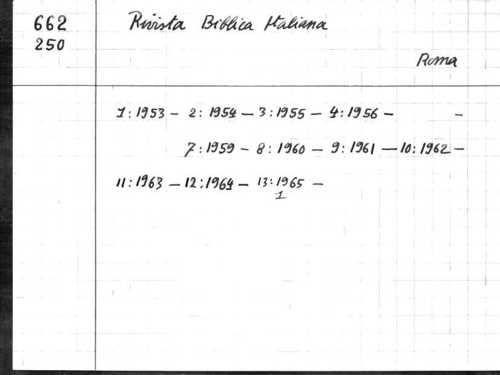 662
250
Rivista Biblica Italiana
Roma
1:1953 - 2:1954 - 3:1955 - 4:1956 - -
7:1959 - 8:1960 - 9:1961 - 10:1962 -
11:1963 - 12:1964 - 13:1965 -
1